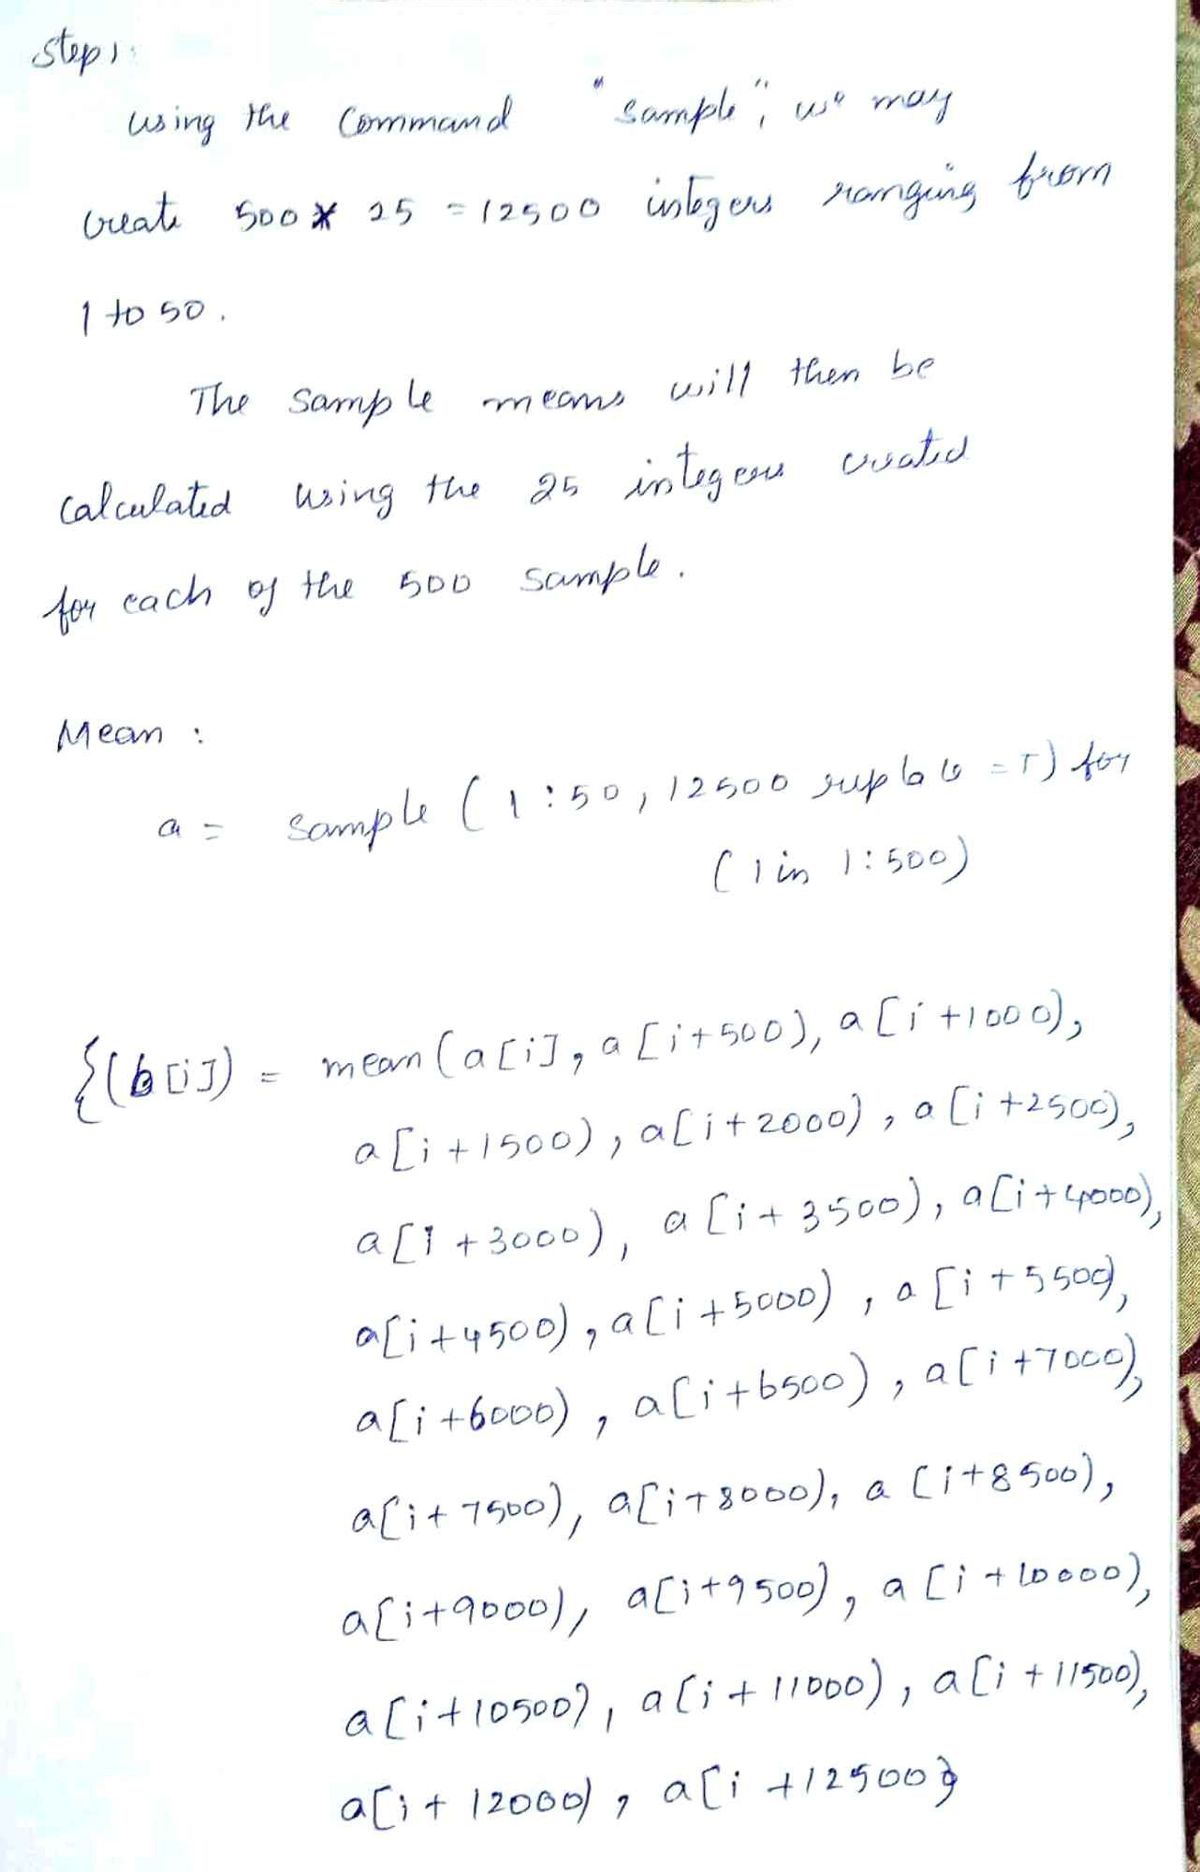 Step 1:
using the Command "sample", we may
create 500 * 25 = 12500 integers ranging from
1 to 50.
The sample means will then be
calculated using the 25 integers created
for each of the 500 sample.
Mean :
a = sample (1:50, 12500 replace = T) for
(1 in 1:500)
{(b[i]) = mean (a[i], a[i+500), a[i+1000),
a[i+1500), a[i+2000), a[i+2500),
a[i+3000), a[i+3500), a[i+4000),
a[i+4500), a[i+5000), a[i+5500),
a[i+6000), a[i+6500), a[i+7000),
a[i+7500), a[i+8000), a[i+8500),
a[i+9000), a[i+9500), a[i+10000),
a[i+10500), a[i+11000), a[i+11500),
a[i+12000), a[i+12500}